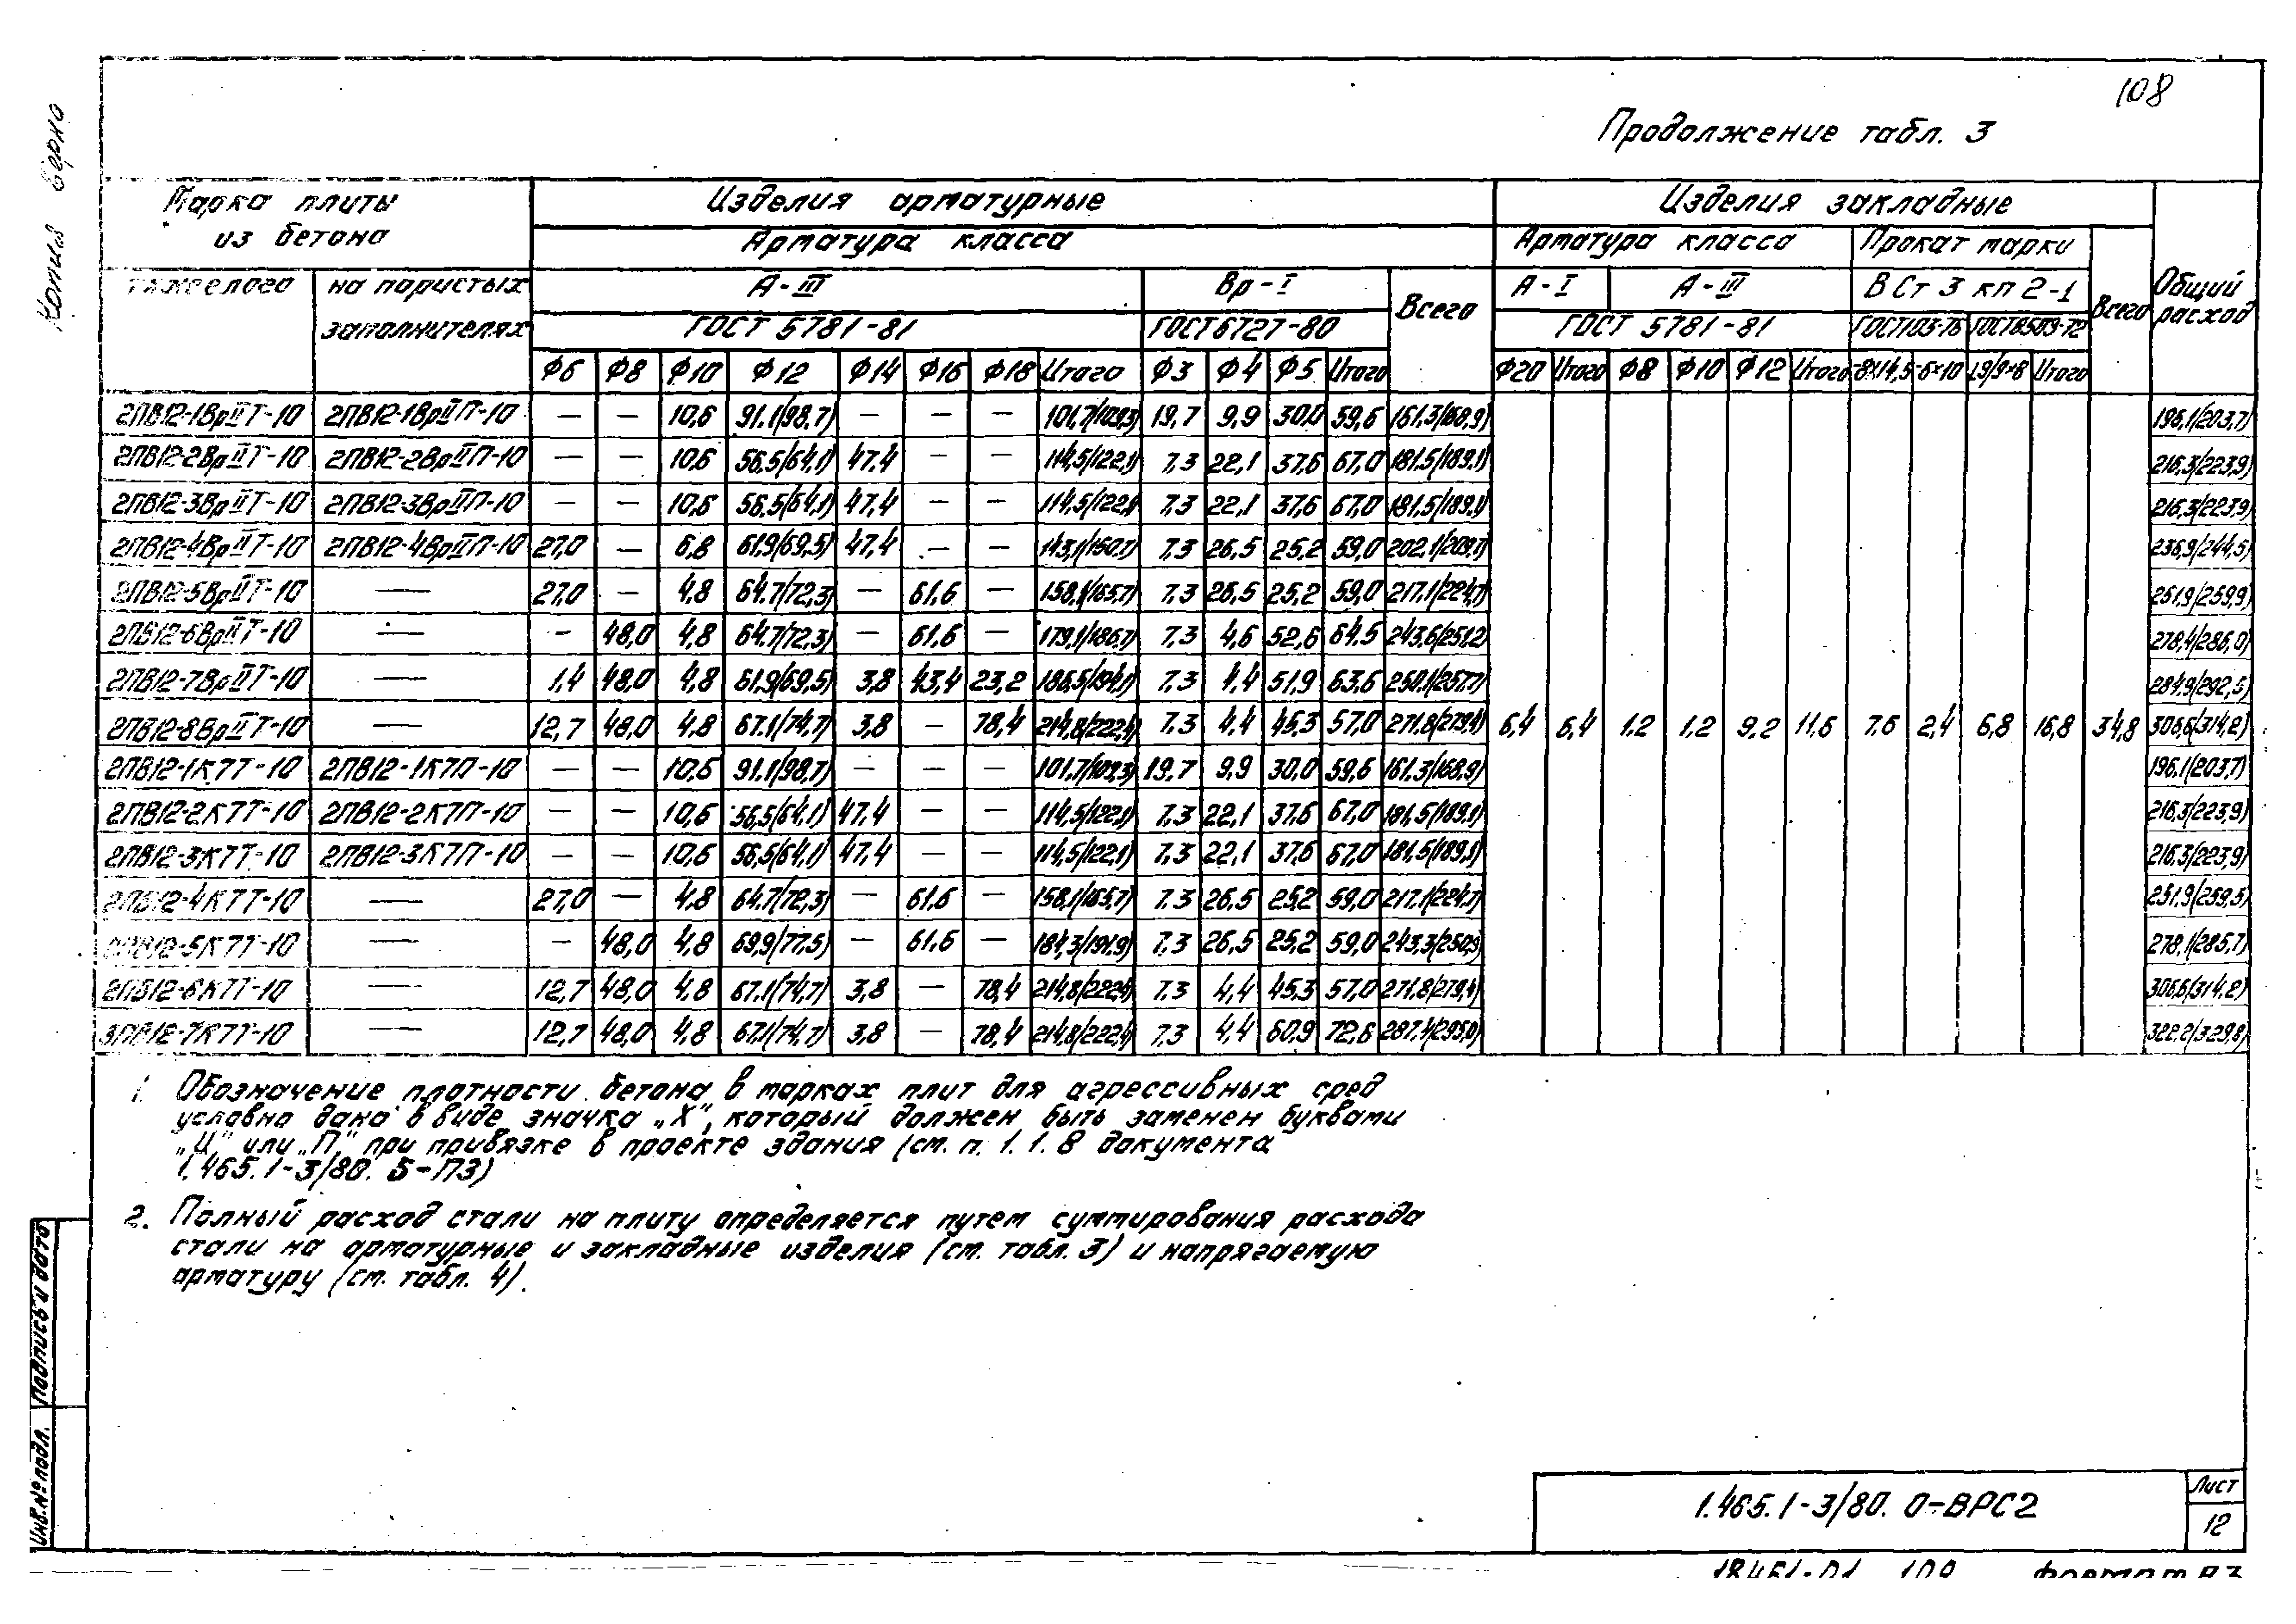 108
Копия верна
Продолжение табл. 3
Марка плиты из бетона
Изделия арматурные
Изделия закладные
Общий расход
Арматура класса
Арматура класса
Прокат марки
Всего
тяжелого
на пористых заполнителях
А-III
Вр-I
Всего
А-I
А-III
ВСт 3 кп 2-1
ГОСТ 5781-81
ГОСТ 6727-80
ГОСТ 5781-81
ГОСТ103-76
ГОСТ8509-72
Ф6 Ф8 Ф10 Ф12 Ф14 Ф16 Ф18 Итого Ф3 Ф4 Ф5 Итого Ф20 Итого Ф8 Ф10 Ф12 Итого -6×10 Итого
2ПВ12-1ВрIIТ-10 2ПВ12-1ВрIIП-10 — — 10,6 91.1(98,7) — — — 101,7(109,3) 19,7 9,9 30,0 59,6 161.3(168,9) 196,1(203,7)
2ПВ12-2ВрIIТ-10 2ПВ12-2ВрIIП-10 — — 10,6 56.5(64,1) 47.4 — — 114,5(122,1) 7,3 22,1 37,6 67,0 181.5(189,1) 216,3(223,9)
2ПВ12-3ВрIIТ-10 2ПВ12-3ВрIIП-10 — — 10,6 56,5(64,1) 47,4 — — 114,5(122,1) 7,3 22,1 37,6 67,0 181,5(189,1) 216,3(223,9)
2ПВ12-4ВрIIТ-10 2ПВ12-4ВрIIП-10 27,0 — 6,8 61,9(69,5) 47,4 — — 143,1(150,7) 7,3 26,5 25,2 59,0 202,1(209,7) 236,9(244,5)
2ПВ12-5ВрIIТ-10 — 27,0 — 4,8 64.7(72,3) — 61,6 — 158,1(165,7) 7,3 26,5 25,2 59,0 217.1(224,7) 251,9(259,9)
2ПВ12-6ВрIIТ-10 — — 48,0 4,8 64.7(72,3) — 61,6 — 179,1(186,7) 7,3 4,6 52,6 64,5 243,6(251,2) 278,4(286,0)
2ПВ12-7ВрIIТ-10 — 1,4 48,0 4,8 61,9(69,5) 3,8 43,4 23,2 186,5(194,1) 7,3 4,4 51,9 63,6 250,1(257,7) 284,9(292,5)
2ПВ12-8ВрIIТ-10 — 12,7 48,0 4,8 67.1(74,7) 3,8 — 78,4 214,8(222,4) 7,3 4,4 45,3 57,0 271,8(279,4) 6,4 6,4 1,2 1,2 9,2 11,6 7,6 2,4 6,8 16,8 34,8 306,6(314,2)
2ПВ12-1К7Т-10 2ПВ12-1К7П-10 — — 10,6 91.1(98,7) — — — 101,7(109,3) 19,7 9,9 30,0 59,6 161,3(168,9) 196,1(203,7)
2ПВ12-2К7Т-10 2ПВ12-2К7П-10 — — 10,6 56,5(64,1) 47,4 — — 114,5(122,1) 7,3 22,1 37,6 67,0 181,5(189,1) 216,3(223,9)
2ПВ12-3К7Т-10 2ПВ12-3К7П-10 — — 10,6 56,5(64,1) 47,4 — — 114,5(122,1) 7,3 22,1 37,6 67,0 181,5(189,1) 216,3(223,9)
2ПВ12-4К7Т-10 — 27,0 — 4,8 64.7(72,3) — 61,6 — 158,1(165,7) 7,3 26,5 25,2 59,0 217.1(224,7) 251,9(259,5)
2ПВ12-5К7Т-10 — — 48,0 4,8 69,9(77,5) — 61,6 — 184,3(191,9) 7,3 26,5 25,2 59,0 243,3(250,9) 278,1(285,7)
2ПВ12-6К7Т-10 — 12,7 48,0 4,8 67.1(74,7) 3,8 — 78,4 214,8(222,4) 7,3 4,4 45,3 57,0 271,8(279,4) 306,6(314,2)
3ПВ12-7К7Т-10 — 12,7 48,0 4,8 67.1(74,7) 3,8 — 78,4 214,8(222,4) 7,3 4,4 60,9 72,6 287,4(295,0) 322,2(329,8)
1. Обозначение плотности бетона в марках плит для агрессивных сред
условно дано в виде значка „Х”, который должен быть заменен буквами
„Ц” или „П” при привязке в проекте здания (см. п. 1.1.8 документа
1.465.1-3/80. Б-ПЗ)
2. Полный расход стали на плиту определяется путем суммирования расхода
стали на арматурные и закладные изделия (см. табл. 3) и напрягаемую
арматуру (см. табл. 4).
Подпись и дата
Инв.№подл.
1.465.1-3/80. 0-ВРС2
Лист
12
18461-01 109 Формат А3